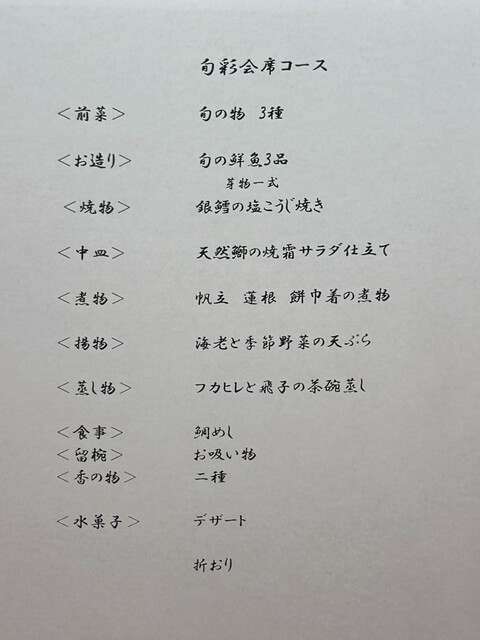 旬彩会席コース
<前菜> 旬の物 3種
<お造り> 旬の鮮魚3品
芽物一式
<焼物> 銀鱈の塩こうじ焼き
<中皿> 天然鰤の焼霜サラダ仕立て
<煮物> 帆立 蓮根 餅巾着の煮物
<揚物> 海老と季節野菜の天ぷら
<蒸し物> フカヒレと飛子の茶碗蒸し
<食事> 鯛めし
<留椀> お吸い物
<香の物> 二種
<水菓子> デザート
折おり